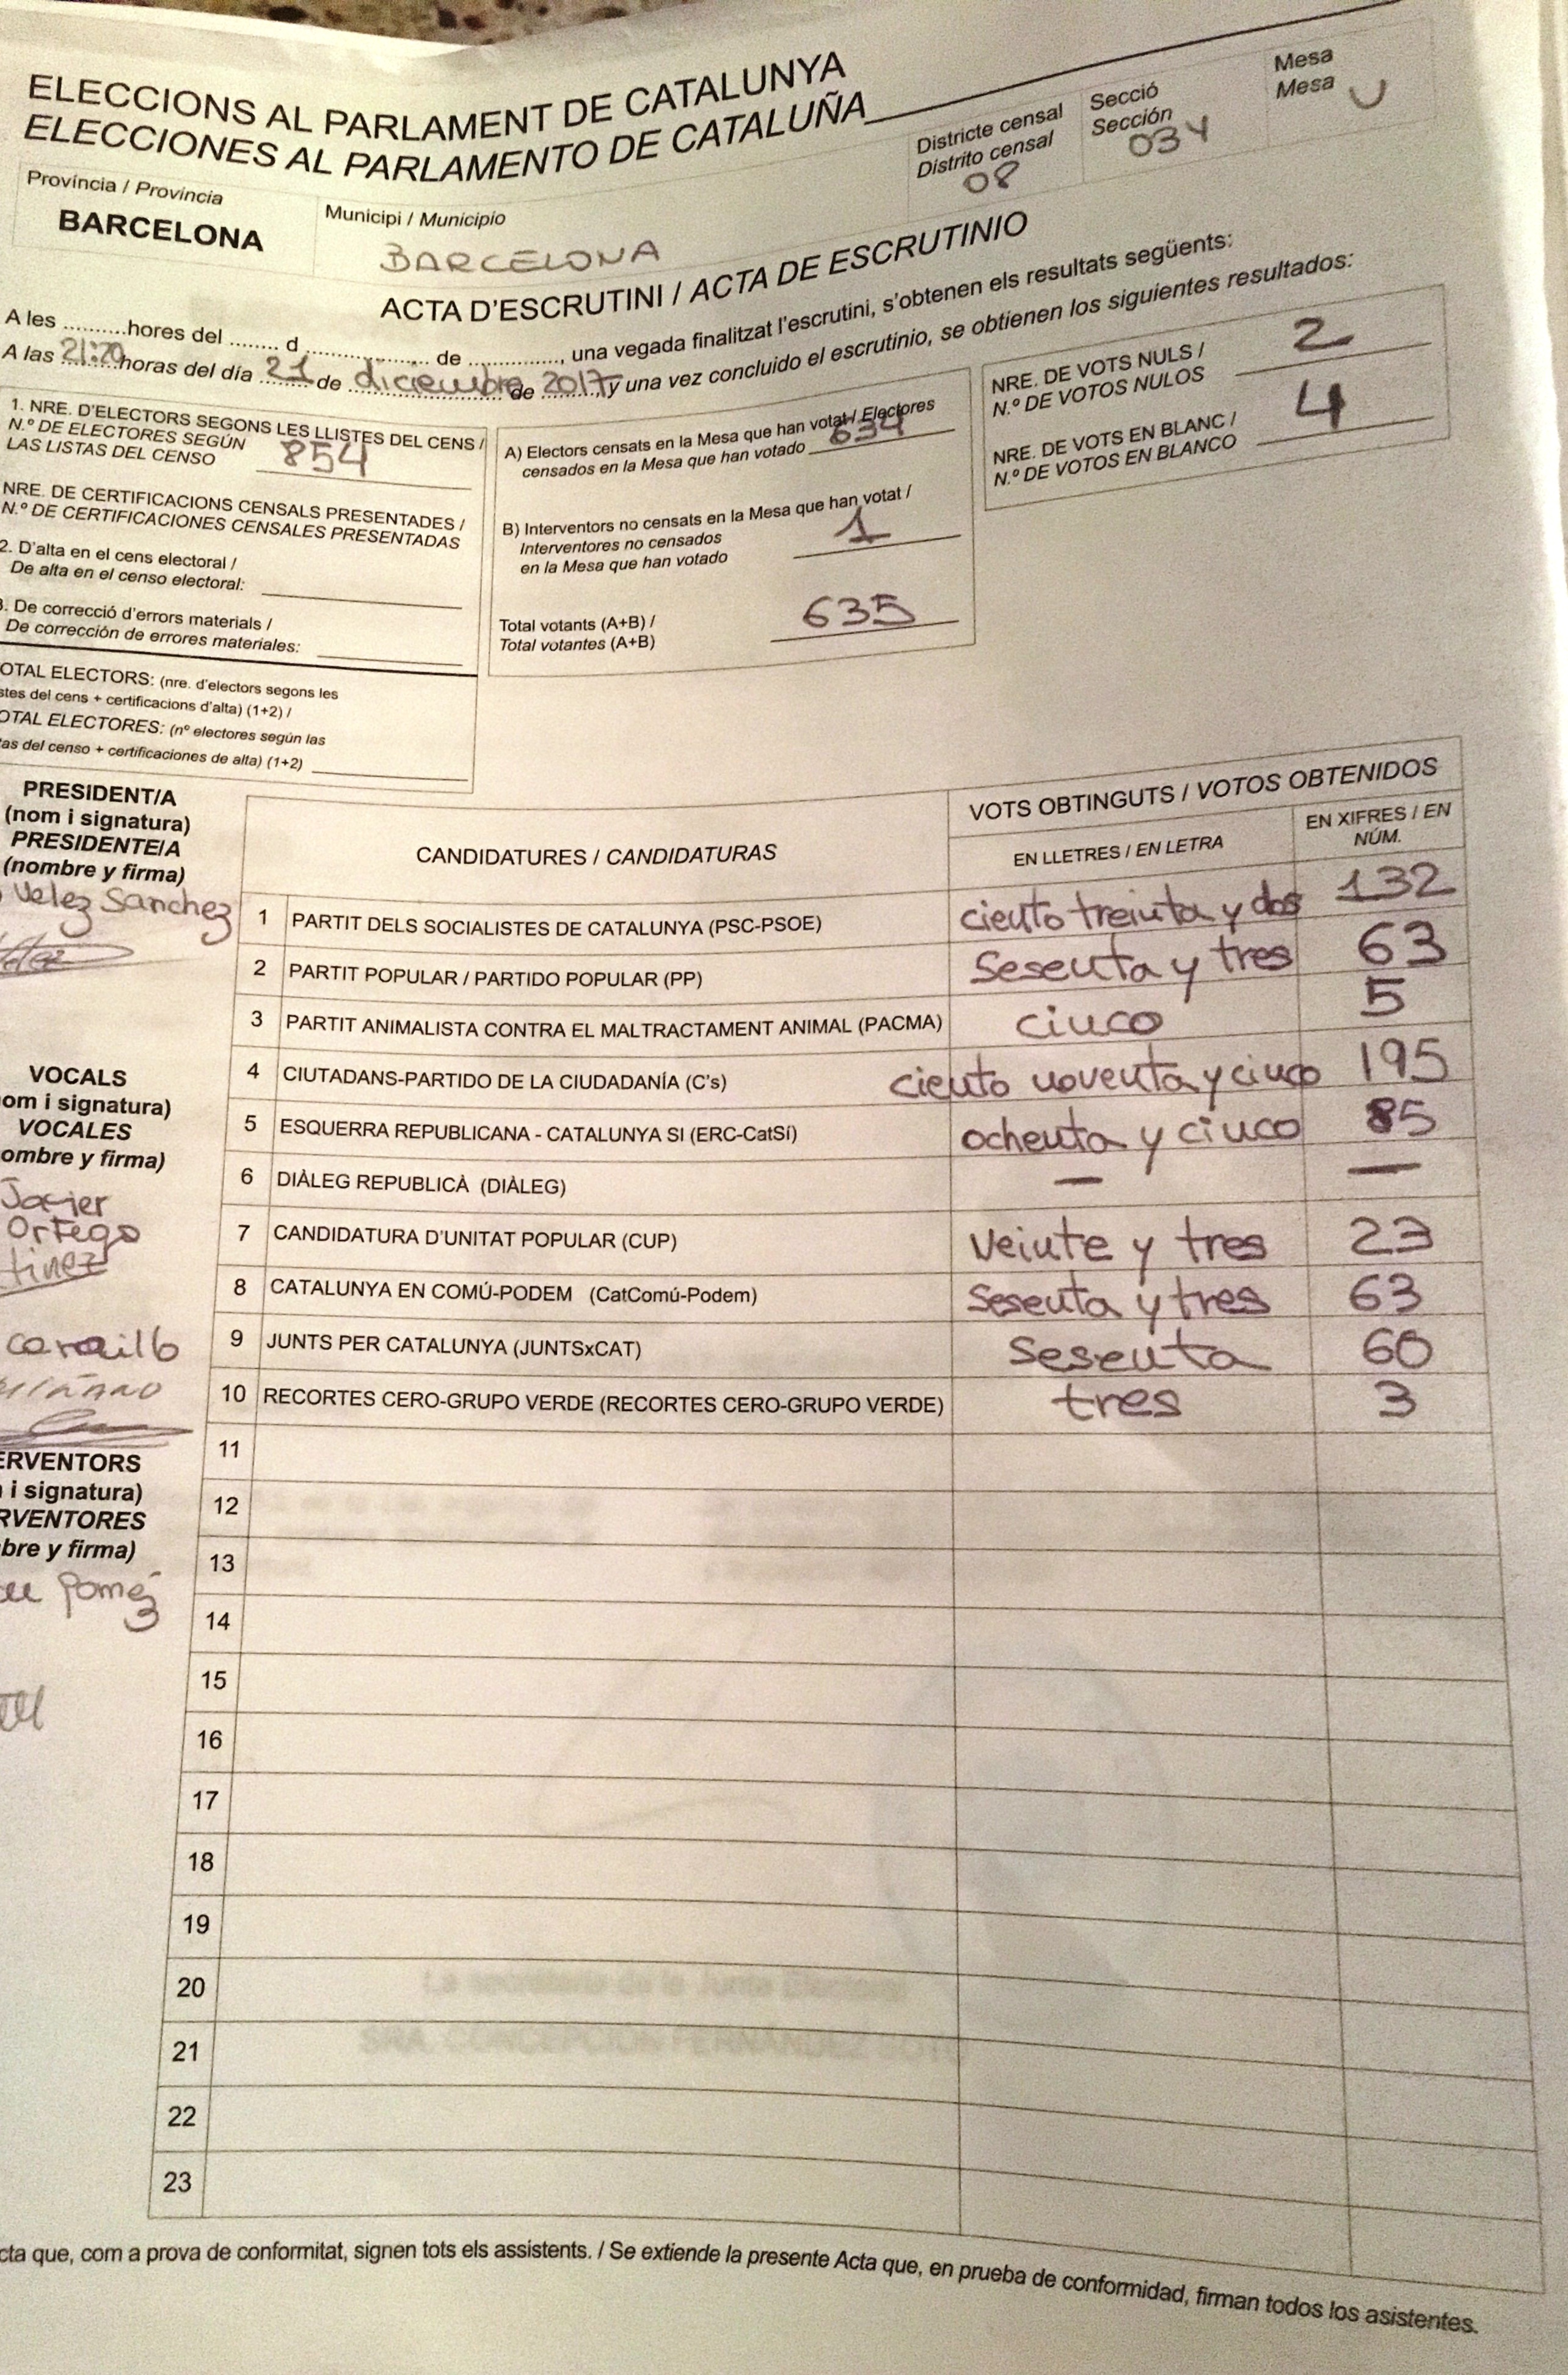 ELECCIONS AL PARLAMENT DE CATALUNYA
ELECCIONES AL PARLAMENTO DE CATALUÑA
Província / Provincia
BARCELONA
Municipi / Municipio
BARCELONA
Districte censal
Distrito censal
08
Secció
Sección
034
Mesa
Mesa
U
ACTA D'ESCRUTINI / ACTA DE ESCRUTINIO
A les ..........hores del ........ d .................... de ..............., una vegada finalitzat l'escrutini, s'obtenen els resultats següents:
A las 21:20 horas del día 21 de diciembre de 2017, y una vez concluido el escrutinio, se obtienen los siguientes resultados:
1. NRE. D'ELECTORS SEGONS LES LLISTES DEL CENS /
N.º DE ELECTORES SEGÚN
LAS LISTAS DEL CENSO 854
NRE. DE CERTIFICACIONS CENSALS PRESENTADES /
N.º DE CERTIFICACIONES CENSALES PRESENTADAS
2. D'alta en el cens electoral /
De alta en el censo electoral:
3. De correcció d'errors materials /
De corrección de errores materiales:
OTAL ELECTORS: (nre. d'electors segons les
stes del cens + certificacions d'alta) (1+2) /
OTAL ELECTORES: (nº electores según las
tas del censo + certificaciones de alta) (1+2)
A) Electors censats en la Mesa que han votat / Electores
censados en la Mesa que han votado 634
B) Interventors no censats en la Mesa que han votat /
Interventores no censados
en la Mesa que han votado 1
Total votants (A+B) /
Total votantes (A+B) 635
NRE. DE VOTS NULS /
N.º DE VOTOS NULOS 2
NRE. DE VOTS EN BLANC /
N.º DE VOTOS EN BLANCO 4
PRESIDENT/A
(nom i signatura)
PRESIDENTE/A
(nombre y firma)
Velez Sanchez
VOCALS
om i signatura)
VOCALES
ombre y firma)
Javier
Ortego
tinez
ERVENTORS
i signatura)
RVENTORES
bre y firma)
CANDIDATURES / CANDIDATURAS
VOTS OBTINGUTS / VOTOS OBTENIDOS
EN LLETRES / EN LETRA
EN XIFRES / EN
NÚM.
1 PARTIT DELS SOCIALISTES DE CATALUNYA (PSC-PSOE) ciento treinta y dos 132
2 PARTIT POPULAR / PARTIDO POPULAR (PP) Sesenta y tres 63
3 PARTIT ANIMALISTA CONTRA EL MALTRACTAMENT ANIMAL (PACMA) cinco 5
4 CIUTADANS-PARTIDO DE LA CIUDADANÍA (C's) ciento noventa y cinco 195
5 ESQUERRA REPUBLICANA - CATALUNYA SI (ERC-CatSí) ochenta y cinco 85
6 DIÀLEG REPUBLICÀ (DIÀLEG) — —
7 CANDIDATURA D'UNITAT POPULAR (CUP) Veinte y tres 23
8 CATALUNYA EN COMÚ-PODEM (CatComú-Podem) Sesenta y tres 63
9 JUNTS PER CATALUNYA (JUNTSxCAT) Sesenta 60
10 RECORTES CERO-GRUPO VERDE (RECORTES CERO-GRUPO VERDE) tres 3
11
12
13
14
15
16
17
18
19
20
21
22
23
cta que, com a prova de conformitat, signen tots els assistents. / Se extiende la presente Acta que, en prueba de conformidad, firman todos los asistentes.